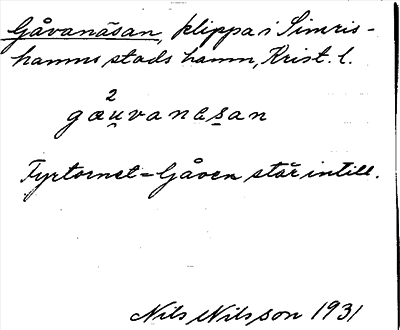 Gåvanäsan, klippa i Simris-
hamns stads hamn, Krist. l.
2
gæu̯vanas̱an
Fyrtornet-Gåven står intill.
Nils Nilsson 1931